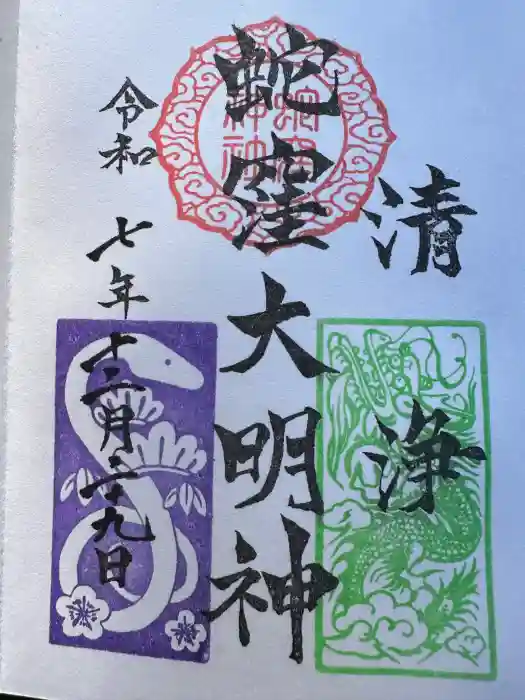 清浄
蛇窪大明神
令和七年十二月二十九日